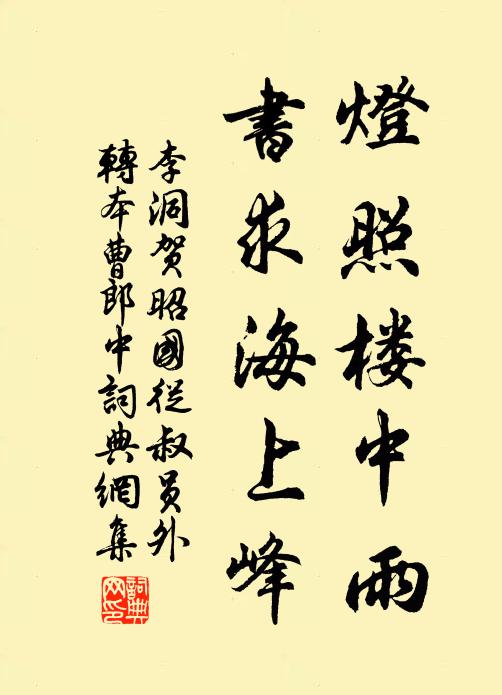 燈照楼中雨
書求海上峰
李洞賀昭國從叔員外
轉本曹郎中詞典網集
詞典网印